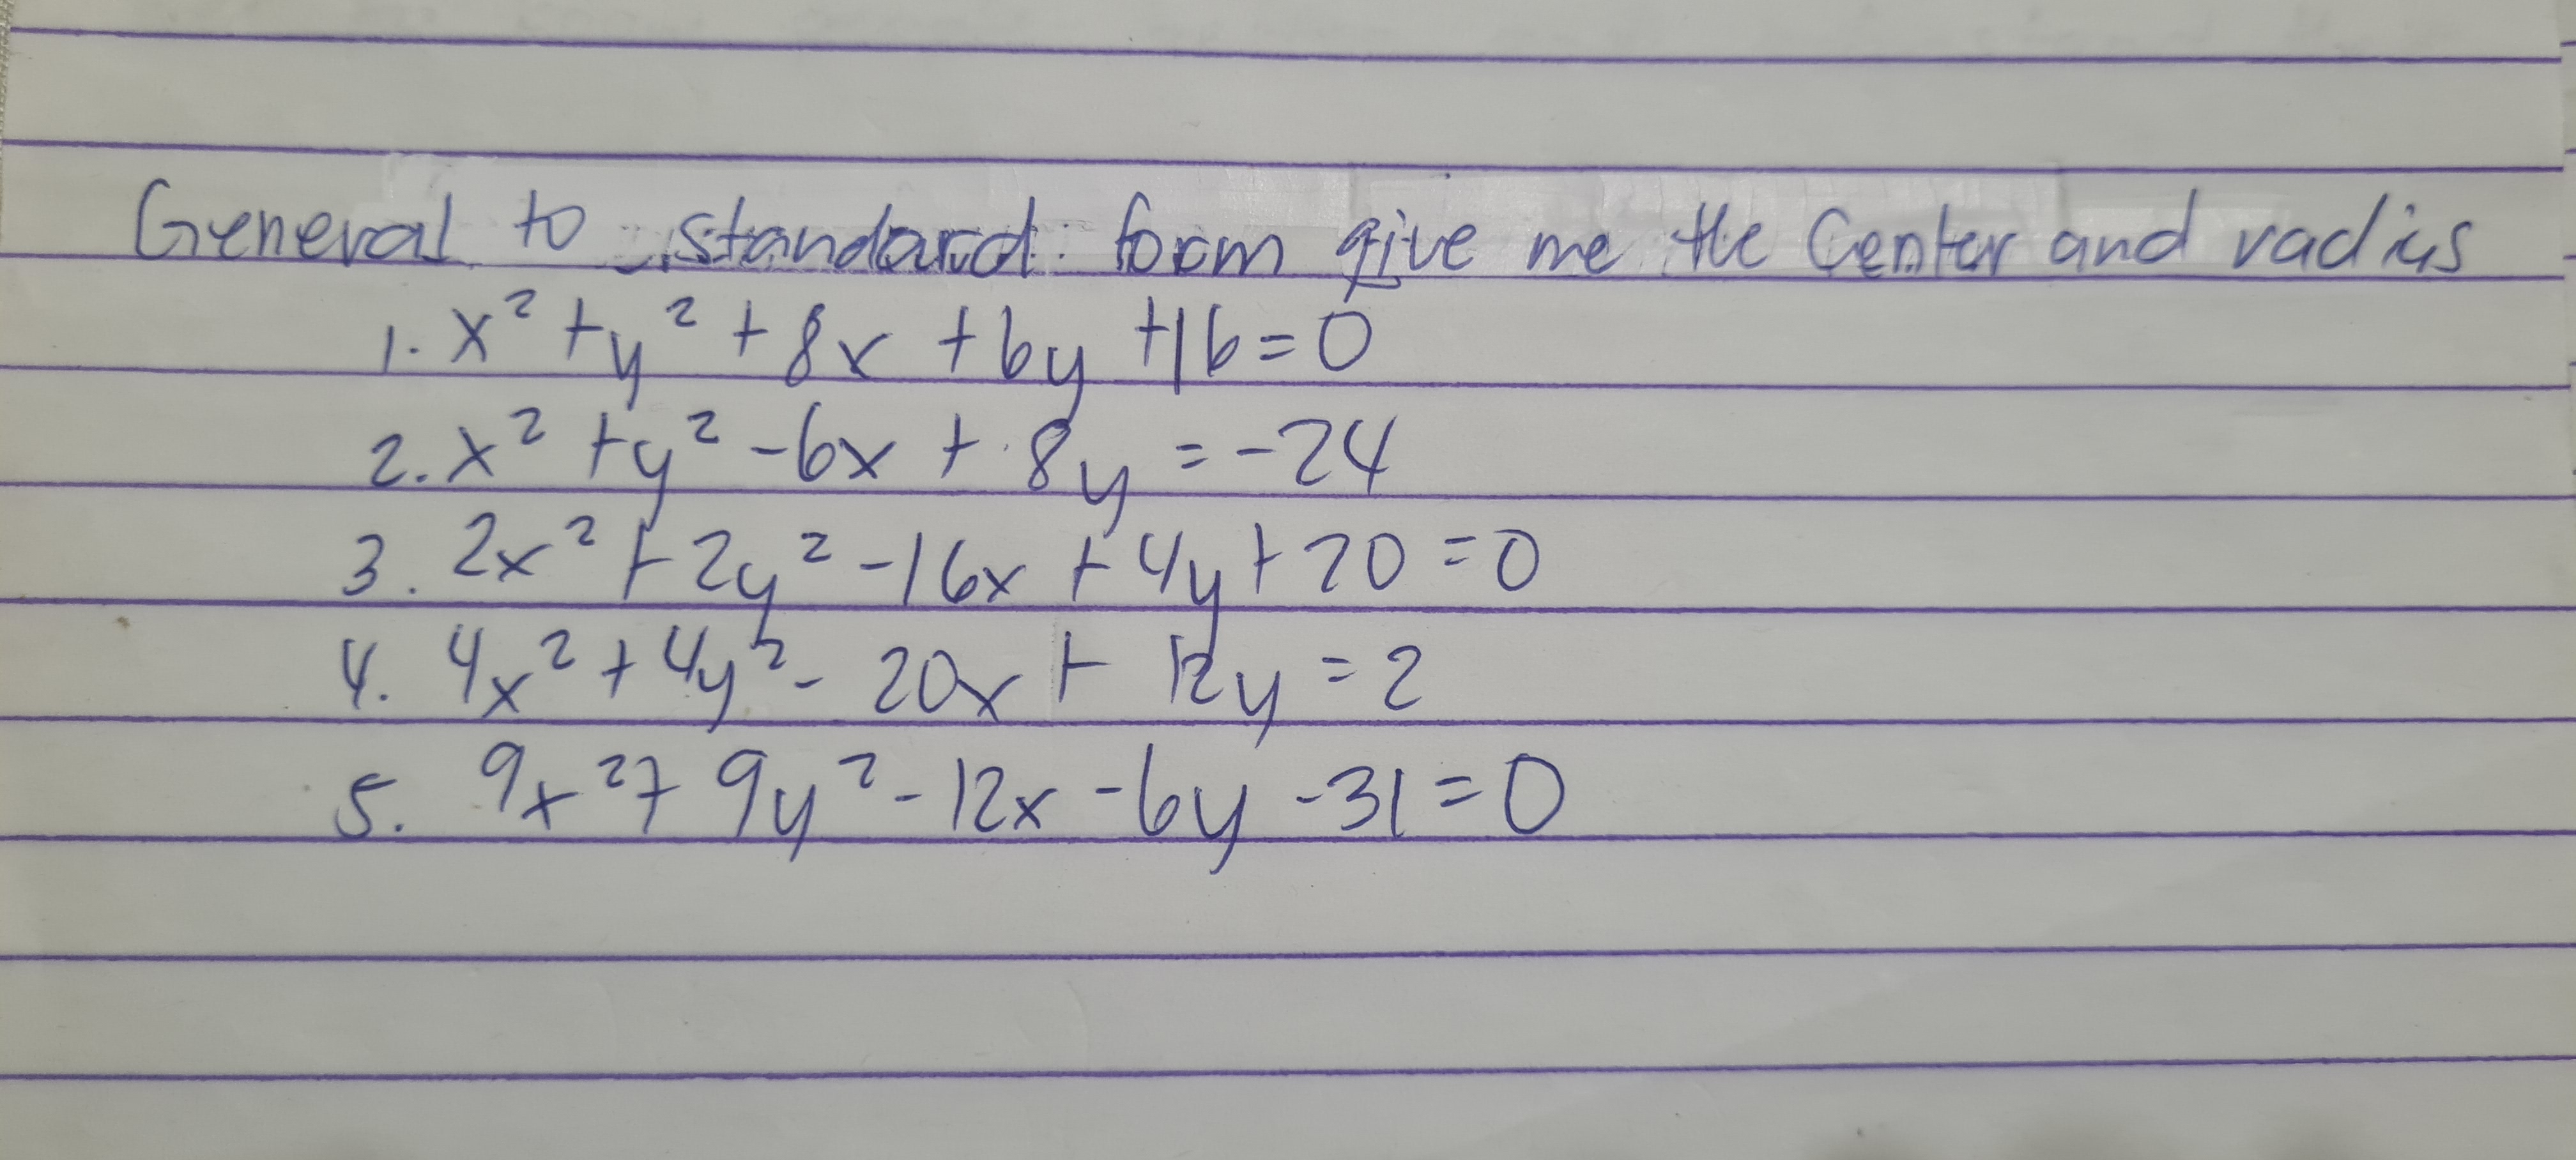 General to standard form give me the Center and radius
1. x² + y² + 8x + 6y + 16 = 0
2. x² + y² - 6x + 8y = -24
3. 2x² + 2y² - 16x + 4y + 20 = 0
4. 4x² + 4y² - 20x + 12y = 2
5. 9x² + 9y² - 12x - 6y - 31 = 0